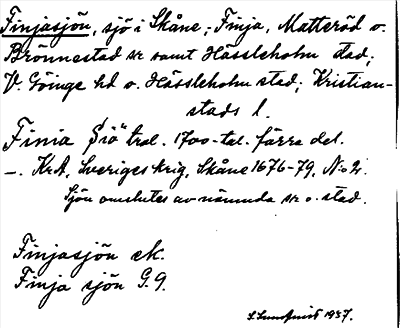 Finjasjön, sjö i Skåne; Finja, Matteröd o.
Brönnestad sr samt Hässleholm stad;
V. Göinge hd o. Hässleholm stad; Kristian-
stads l.
Finia Siö tral. 1700-tal. förra del.
–. KrA, Sveriges krig, Skåne 1676-79, N:o 2.
Sjön omslutes av nämnda sr o. stad.
Finjasjön ek.
Finja sjön G.9.
S. Lundqvist 1937.